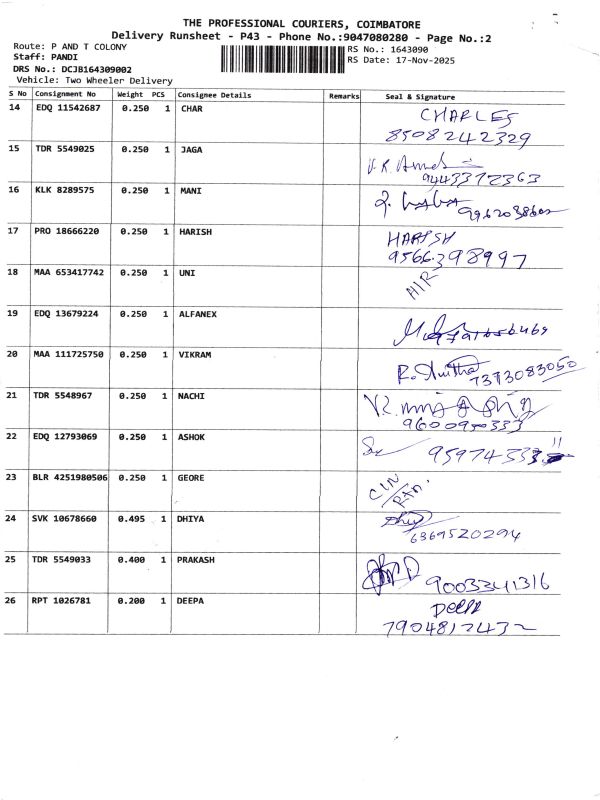 THE PROFESSIONAL COURIERS, COIMBATORE
Delivery Runsheet - P43 - Phone No.:9047080280 - Page No.:2
Route: P AND T COLONY
RS No.: 1643090
Staff: PANDI
RS Date: 17-Nov-2025
DRS No.: DCJB164309002
Vehicle: Two Wheeler Delivery
S No Consignment No Weight PCS Consignee Details Remarks Seal & Signature
14 EDQ 11542687 0.250 1 CHAR CHARLES
8508242329
15 TDR 5549025 0.250 1 JAGA
9443372363
16 KLK 8289575 0.250 1 MANI
17 PRO 18666220 0.250 1 HARISH HARISH
9566398997
18 MAA 653417742 0.250 1 UNI
19 EDQ 13679224 0.250 1 ALFANEX
20 MAA 111725750 0.250 1 VIKRAM
7373083050
21 TDR 5548967 0.250 1 NACHI
9600900333
22 EDQ 12793069 0.250 1 ASHOK
23 BLR 4251980506 0.250 1 GEORE
24 SVK 10678660 0.495 1 DHIYA
6369520294
25 TDR 5549033 0.400 1 PRAKASH
9003341316
26 RPT 1026781 0.200 1 DEEPA DEEPA
7904812432